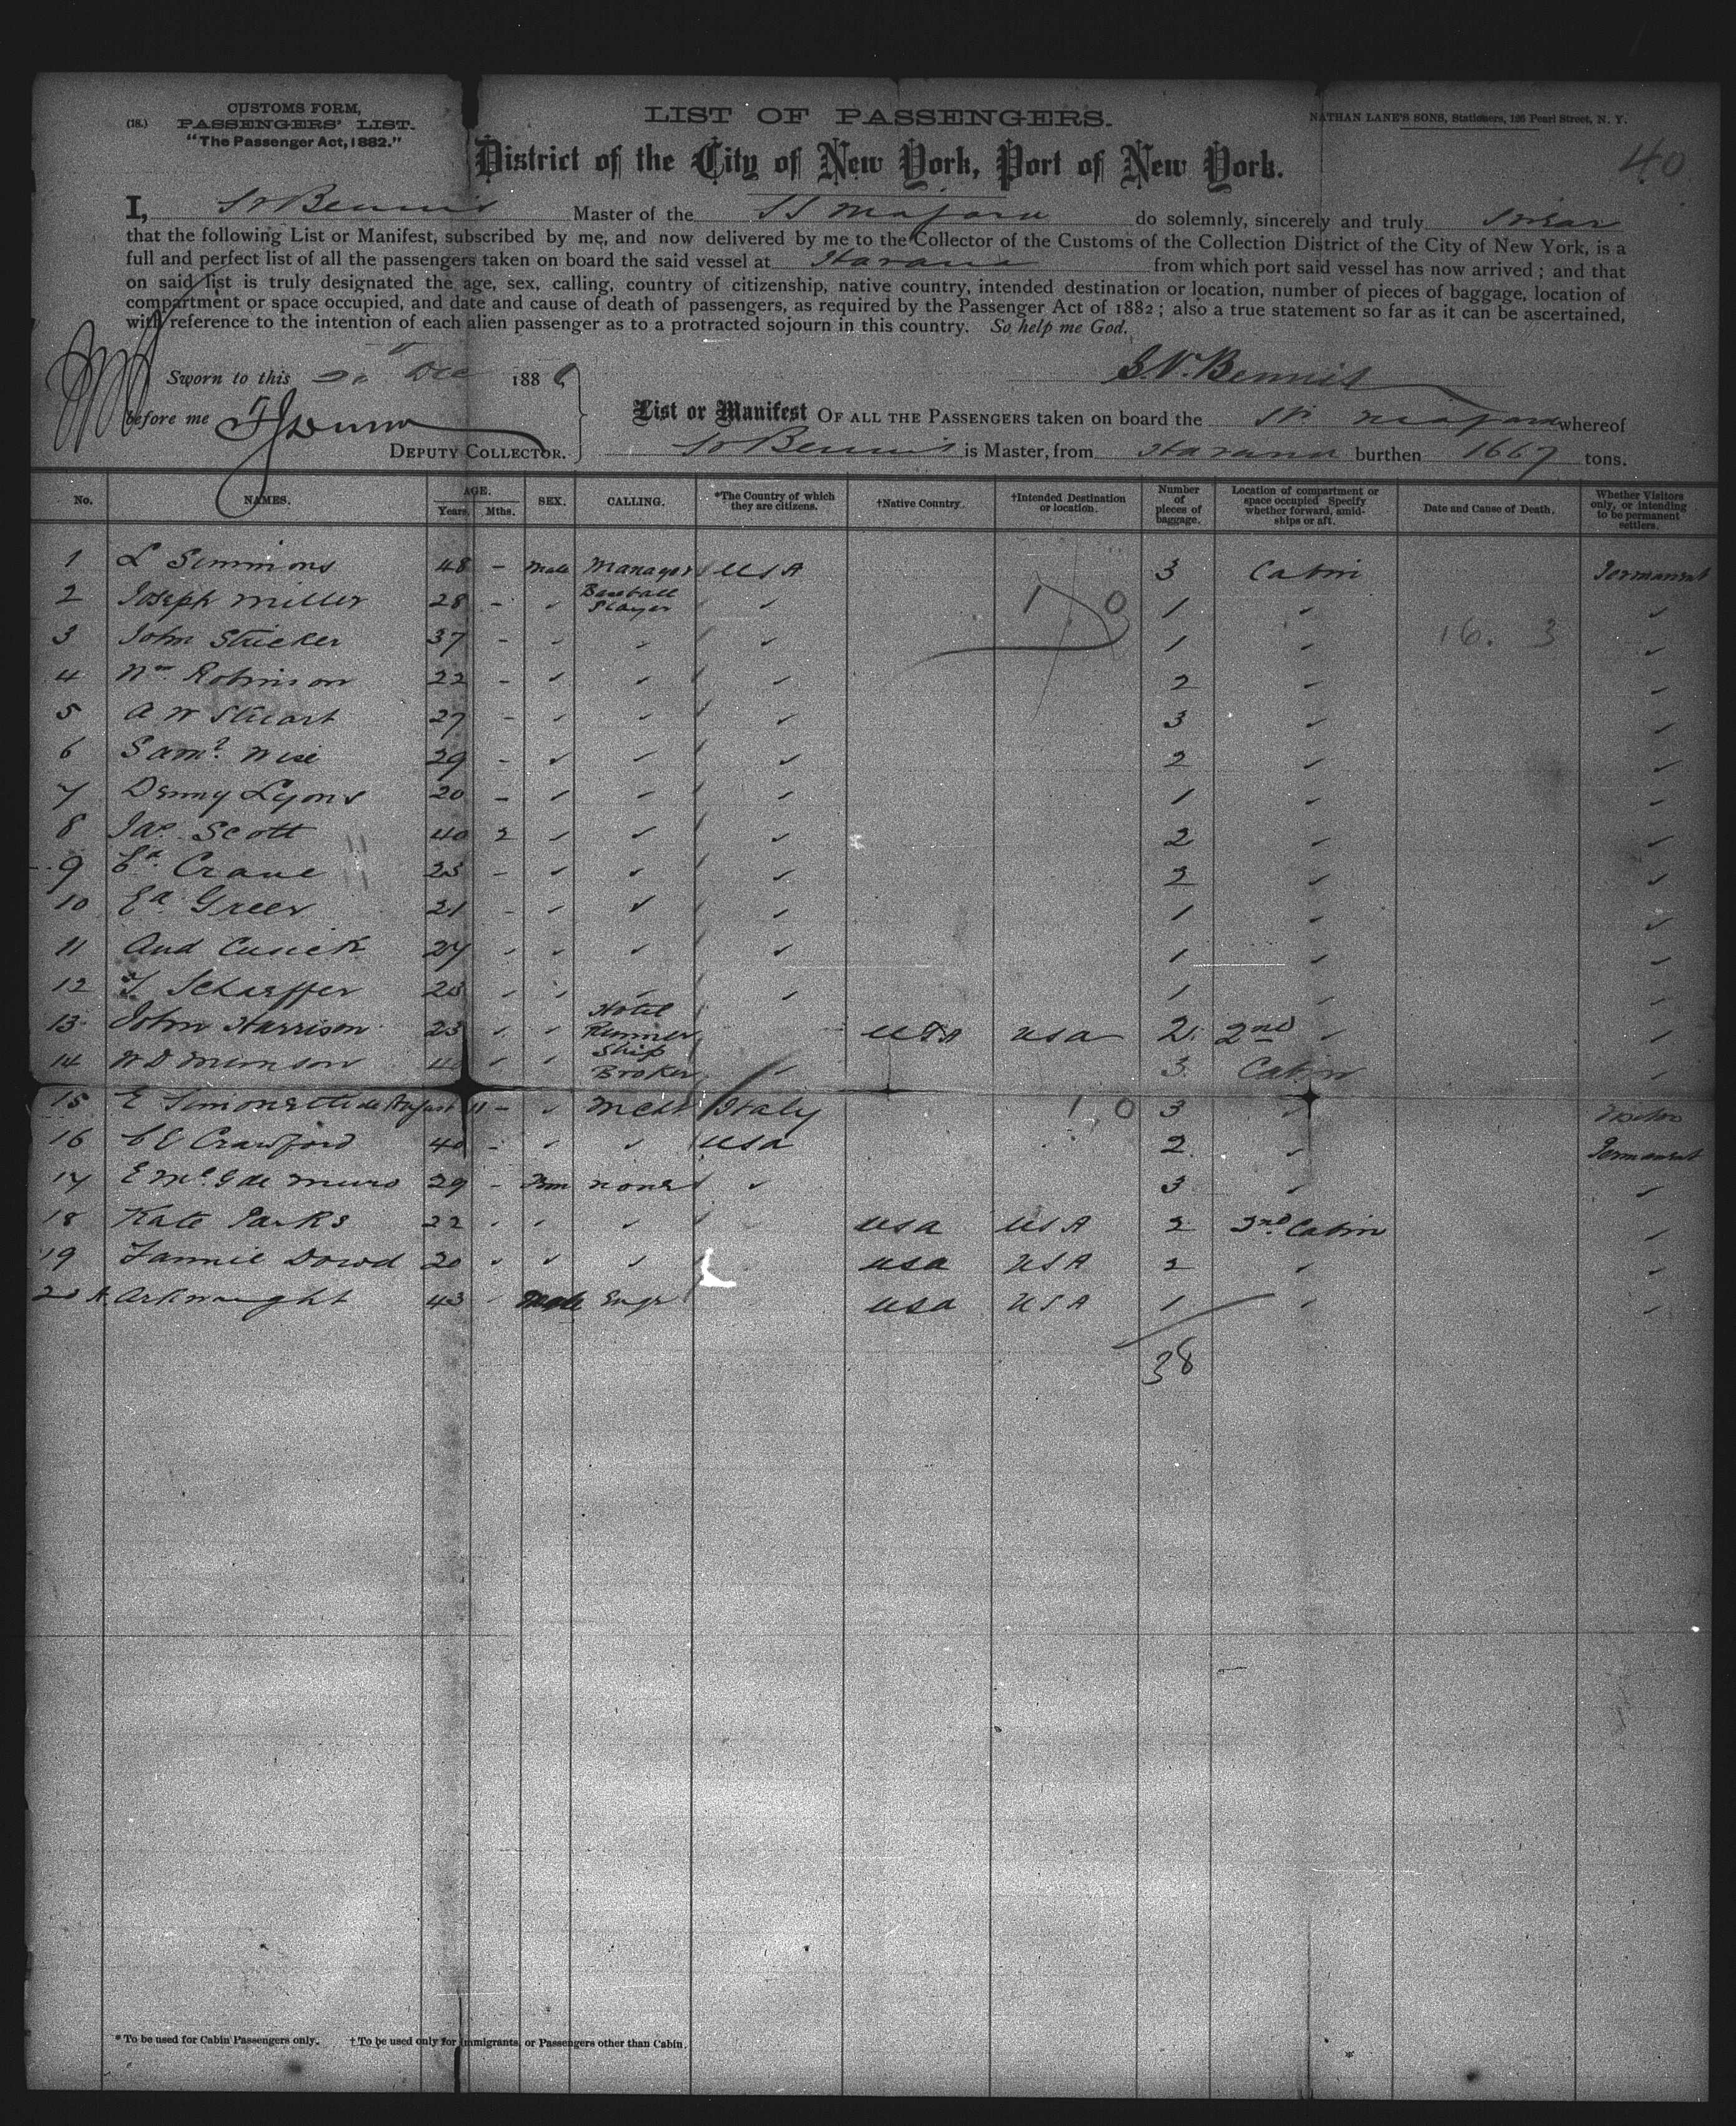 CUSTOMS FORM,
(18.) PASSENGERS' LIST.
"The Passenger Act, 1882."
LIST OF PASSENGERS.
NATHAN LANE'S SONS, Stationers, 126 Pearl Street, N. Y.
40
District of the City of New York, Port of New York.
I, Bennis Master of the SS Niagara do solemnly, sincerely and truly swear
that the following List or Manifest, subscribed by me, and now delivered by me to the Collector of the Customs of the Collection District of the City of New York, is a
full and perfect list of all the passengers taken on board the said vessel at Havana from which port said vessel has now arrived ; and that
on said list is truly designated the age, sex, calling, country of citizenship, native country, intended destination or location, number of pieces of baggage, location of
compartment or space occupied, and date and cause of death of passengers, as required by the Passenger Act of 1882 ; also a true statement so far as it can be ascertained,
with reference to the intention of each alien passenger as to a protracted sojourn in this country. So help me God.
Sworn to this Dec 188
before me
DEPUTY COLLECTOR.
Bennis
List or Manifest OF ALL THE PASSENGERS taken on board the Str Niagara whereof
Bennis is Master, from Havana burthen 1667 tons.
No. NAMES. AGE. Years. Mths. SEX. CALLING. *The Country of which they are citizens. †Native Country. †Intended Destination or location. Number of pieces of baggage. Location of compartment or space occupied Specify whether forward, amid-ships or aft. Date and Cause of Death. Whether Visitors only, or intending to be permanent settlers.
1 L Simmons 48 - Male Manager USA 3 Cabin Permanent
2 Joseph Miller 28 - ✓ Baseball Player ✓ 1 ✓ ✓
3 John Stricker 37 - ✓ ✓ ✓ 1 ✓ ✓
4 Wm Robinson 22 - ✓ ✓ ✓ 2 ✓ ✓
5 A W Stuart 27 - ✓ ✓ ✓ 3 ✓ ✓
6 Saml Wise 29 - ✓ ✓ ✓ 2 ✓ ✓
7 Denny Lyons 20 - ✓ ✓ ✓ 1 ✓ ✓
8 Jas Scott 40 2 ✓ ✓ ✓ 2 ✓ ✓
9 Ed Crane 23 - ✓ ✓ ✓ 2 ✓ ✓
10 Ed Greer 21 - ✓ ✓ ✓ 1 ✓ ✓
11 And Cusick 27 ✓ ✓ ✓ ✓ 1 ✓ ✓
12 Schaeffer 23 ✓ ✓ ✓ ✓ 1 ✓ ✓
13 John Harrison 23 ✓ ✓ Hotel Runner USA USA 2 2nd ✓ ✓
14 W D Munson ✓ ✓ Ship Broker ✓ 3 Cabin ✓
15 E - ✓ Mcht Italy 3 ✓
16 C E Crawford 40 - ✓ ✓ USA 2 ✓ Permanent
17 E Mc G de Muro 29 - Fem none ✓ 3 ✓ ✓
18 Kate Parks 22 ✓ ✓ ✓ USA USA 2 2nd Cabin ✓
19 Fannie Dowd 20 ✓ ✓ ✓ USA USA 2 ✓ ✓
20 A Arkwright 43 ✓ Male Engr USA USA 1 ✓ ✓
38
*To be used for Cabin Passengers only. †To be used only for Immigrants, or Passengers other than Cabin.